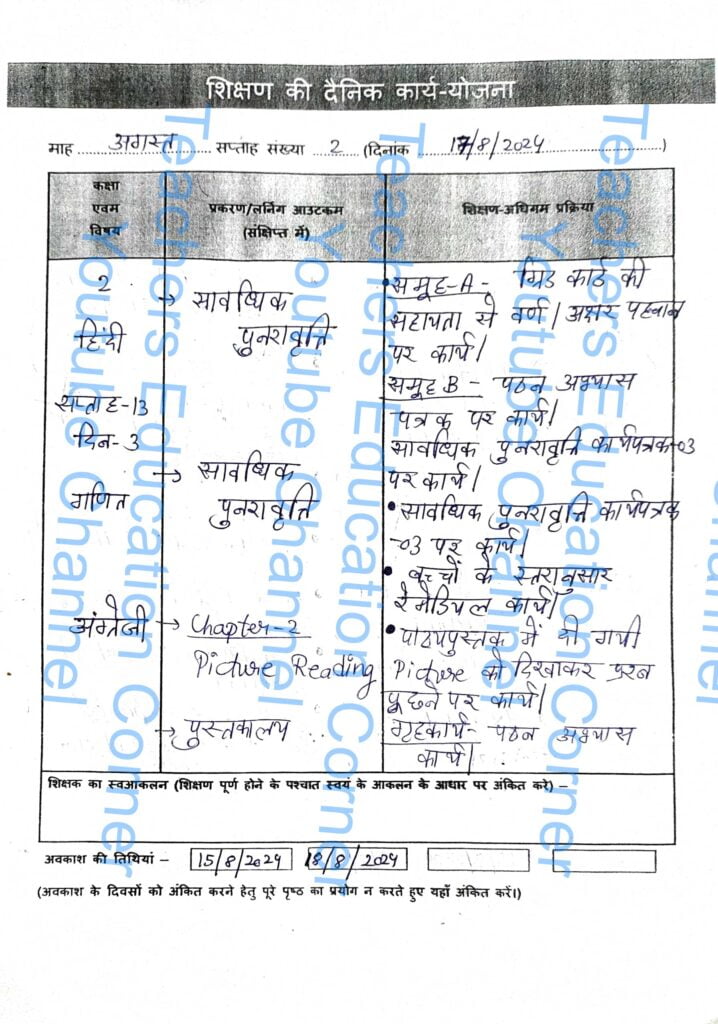 शिक्षण की दैनिक कार्य-योजना
माह अगस्त सप्ताह संख्या 2 (दिनांक 17/8/2024)
कक्षा
एवम
विषय
प्रकरण/लर्निंग आउटकम
(संक्षिप्त में)
शिक्षण-अधिगम प्रक्रिया
2
हिंदी
सप्ताह-13
दिन-3
→ सावधिक
पुनरावृत्ति
• समूह-A - ग्रिड कार्ड की
सहायता से वर्ण / अक्षर पहचान
पर कार्य।
समूह B - पठन अभ्यास
पत्रक पर कार्य।
सावधिक पुनरावृत्ति कार्यपत्रक-03
पर कार्य।
गणित
→ सावधिक
पुनरावृत्ति
• सावधिक पुनरावृत्ति कार्यपत्रक
-03 पर कार्य।
• बच्चों के स्तरानुसार
रेमेडियल कार्य।
अंग्रेजी
→ Chapter-2
Picture Reading
• पाठ्यपुस्तक में दी गयी
Picture को दिखाकर प्रश्न
पूछने पर कार्य।
→ पुस्तकालय
गृहकार्य- पठन अभ्यास
कार्य।
शिक्षक का स्वआकलन (शिक्षण पूर्ण होने के पश्चात स्वयं के आकलन के आधार पर अंकित करे) –
अवकाश की तिथियां – 15/8/2024 18/8/2024
(अवकाश के दिवसों को अंकित करने हेतु पूरे पृष्ठ का प्रयोग न करते हुए यहाँ अंकित करें।)
Teachers Education Corner
Youtube Channel
Teachers Education Corner
Youtube Channel
Teachers Education Corner
Youtube Channel